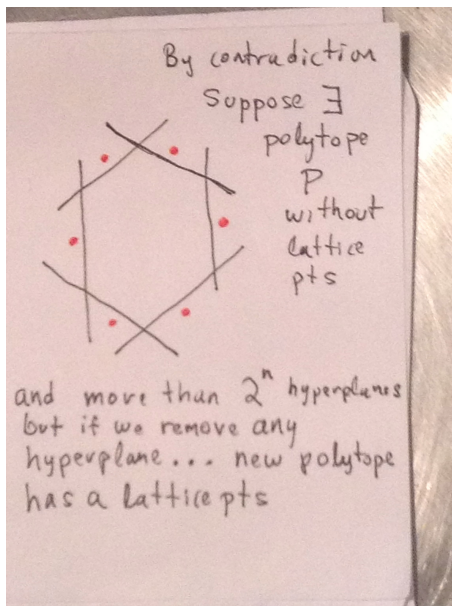 By contradiction
Suppose ∃
polytope
P
without
lattice
pts
and more than 2ⁿ hyperplanes
but if we remove any
hyperplane... new polytope
has a lattice pts